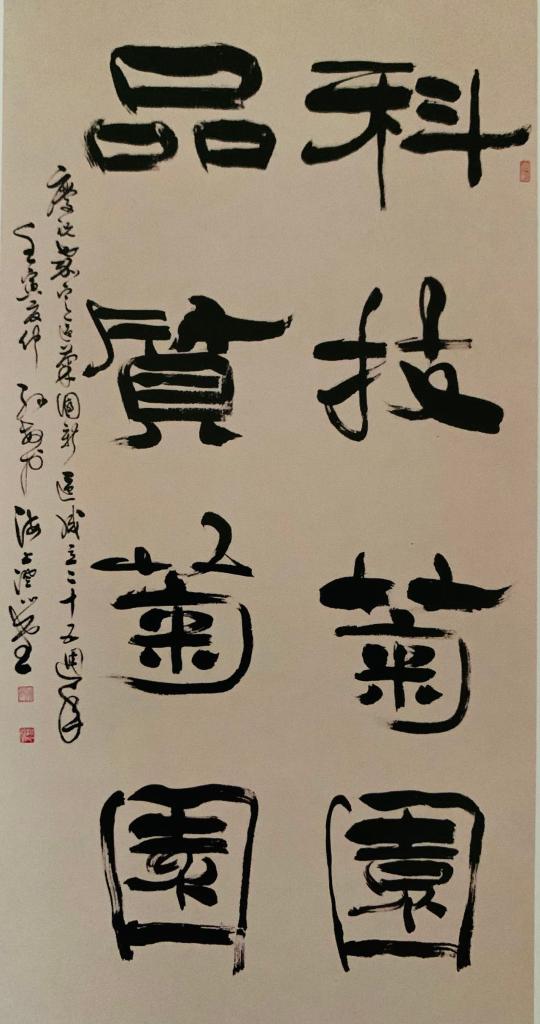 科技菊園
品質菊園
慶祝菊園新區成立二十五週年
壬寅夏仲 海上